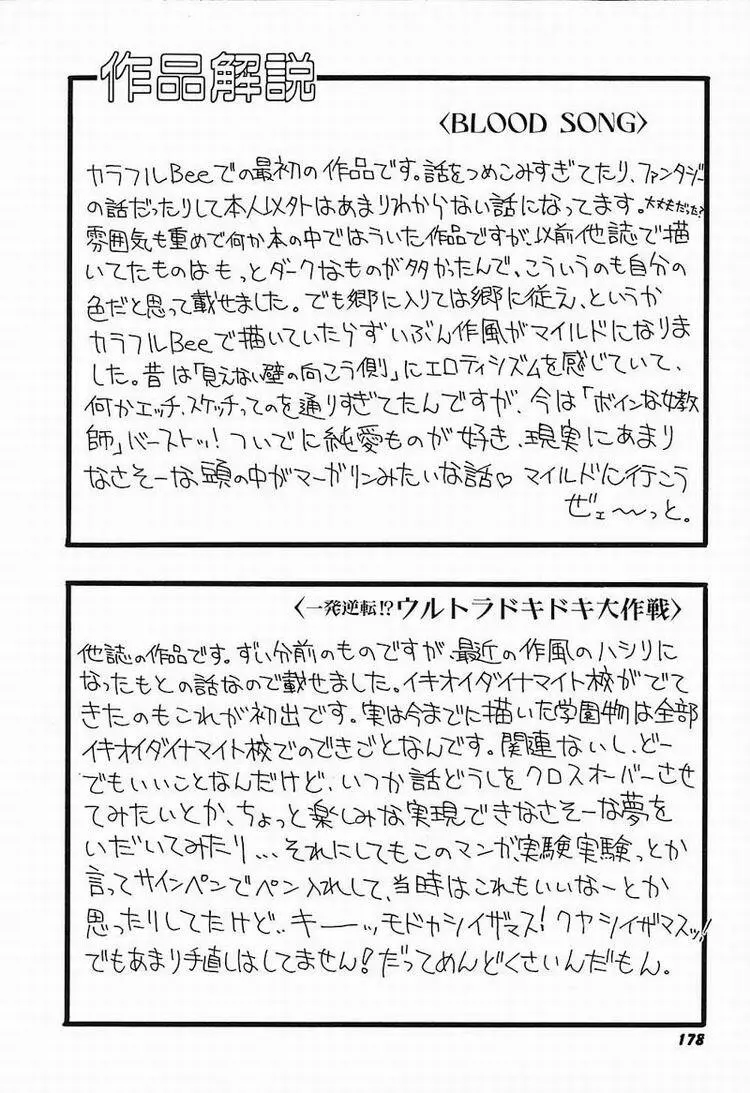 作品解説
〈BLOOD SONG〉
カラフルBeeでの最初の作品です。話をつめこみすぎてたり、ファンタジー
の話だったりして本人以外はあまりわからない話になってます。大丈夫だった?
雰囲気も重めで何か本の中ではういた作品ですが、以前他誌で描
いてたものはもっとダークなものが多かったんで、こういうのも自分の
色だと思って載せました。でも郷に入りては郷に従え、というか
カラフルBeeで描いていたらずいぶん作風がマイルドになりま
した。昔は「見えない壁の向こう側」にエロティシズムを感じていて、
何かエッチ、スケッチってのを通りすぎてたんですが、今は「ボインな女教
師」バーストッ!ついでに純愛ものが好き、現実にあまり
なさそーな、頭の中がマーガリンみたいな話♡マイルドに行こう
ぜェ〜〜っと。
〈一発逆転!?ウルトラドキドキ大作戦〉
他誌の作品です。ずい分前のものですが、最近の作風のハシリに
なったもとの話なので載せました。イキオイダイナマイト校がでて
きたのもこれが初出です。実は今までに描いた学園物は全部
イキオイダイナマイト校でのできごとなんです。関連ないし、どー
でもいいことなんだけど、いつか話どうしをクロスオーバーさせ
てみたいとか、ちょっと楽しみな実現できなさそーな夢を
いだいてみたり…それにしてもこのマンガ、実験実験っとか
言ってサインペンでペン入れして、当時はこれもいいなーとか
思ったりしてたけど..キーーッモドカシイザマス!クヤシイザマスッ!!
でもあまり手直しはしてません!だってめんどくさいんだもん。
178